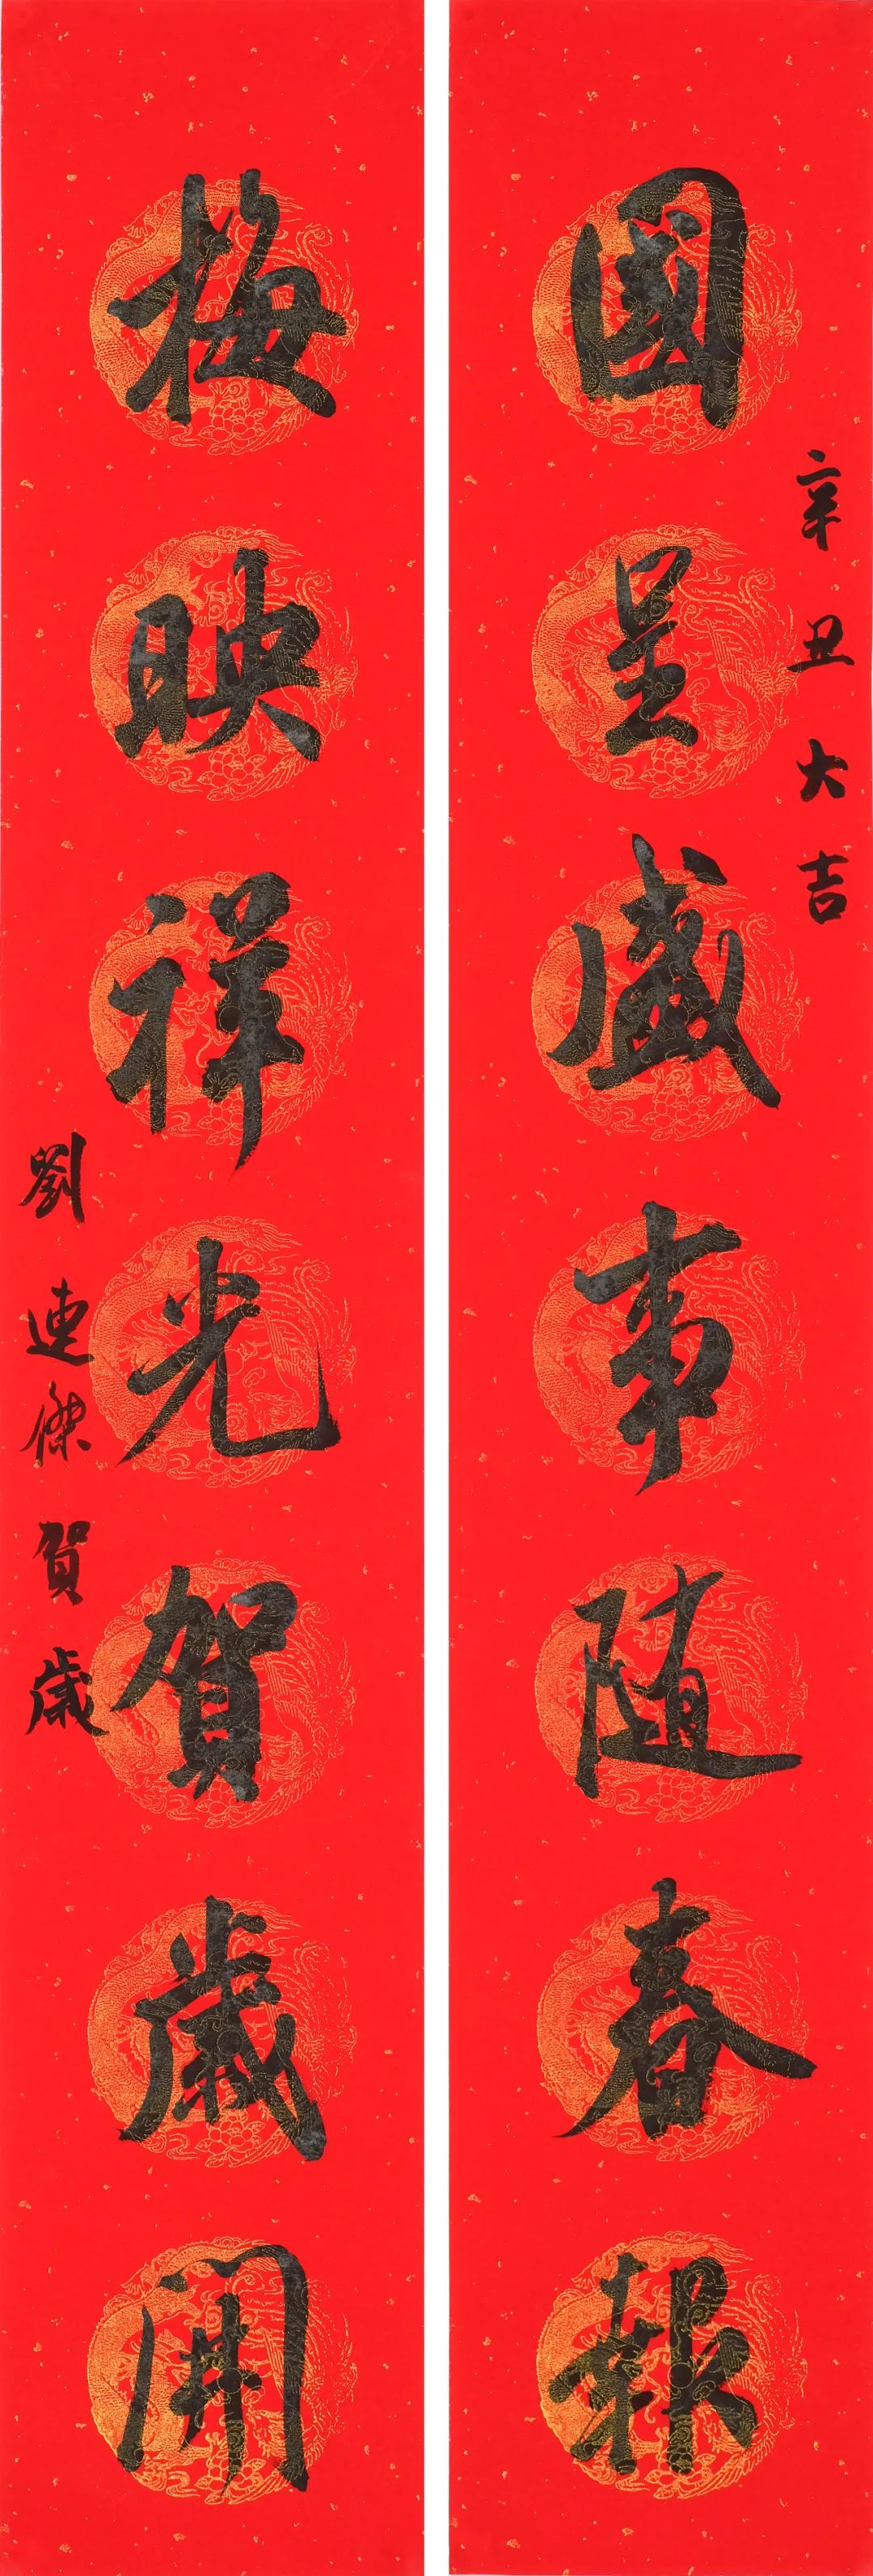 辛丑大吉
國呈盛事随春報
梅映祥光賀歲開
劉連傑賀歲